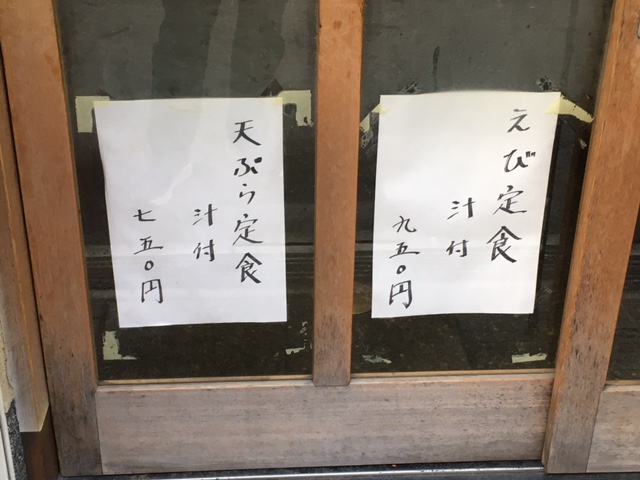 えび定食
汁付
九五〇円
天ぷら定食
汁付
七五〇円